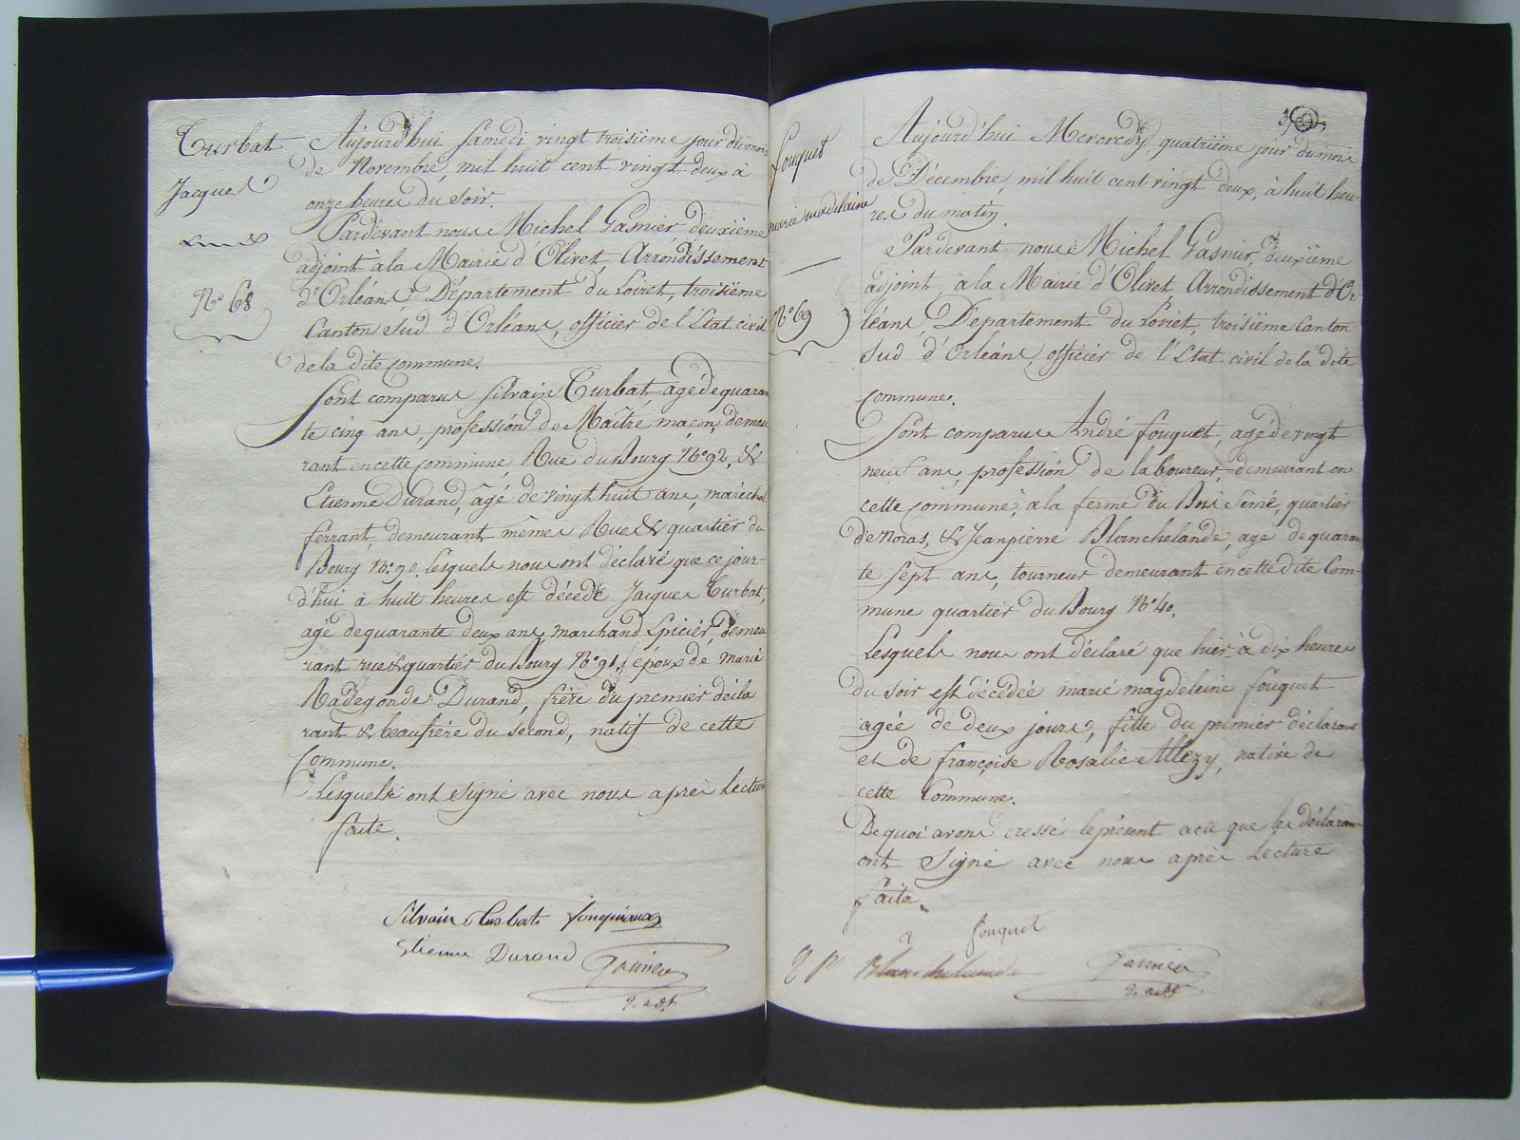 Turbat
Jacques
N.o 68
Aujourd'hui samedi vingt troisième jour du mois
de Novembre, mil huit cent vingt deux à
onze heures du soir.
Pardevant nous Michel Gasnier deuxième
adjoint à la Mairie d'Olivet, Arrondissement
d'Orléans Département du Loiret, troisième
Canton Sud d'Orléans, officier de l'Etat civil
de la dite commune.
Sont comparus Silvain Turbat agé de quaran
te cinq ans, profession de Maître maçon, demeu
rant en cette commune Rue du Bourg N.o 92, &
Etienne Durand, âgé de vingt huit ans, maréchal
ferrant, demeurant mêmes Rue & quartier du
Bourg N.o 90. lesquels nous ont déclaré que ce jour-
d'hui à huit heures est décédé Jacques Turbat,
agé de quarante deux ans, marchand Epicier, demeu
rant rue & quartier du Bourg N.o 91, époux de marie
Radegonde Durand, frère du premier décla
rant & beaufrère du second, natif de cette
Commune.
Lesquels ont signé avec nous après lecture
faite.
Silvain Turbat
Etienne Durand
Gasnier
2. adj.
fouquet
marie madelaine
N.o 69
Aujourd'hui Mercredy, quatrième jour du mois
de Décembre, mil huit cent vingt deux, à huit heu-
res du matin
Pardevant nous Michel Gasnier, deuxième
adjoint, à la Mairie d'Olivet Arrondissement d'Or-
léans, Département du Loiret, troisième Canton
Sud d'Orléans, officier de l'Etat civil de la dite
Commune.
Sont comparus André fouquet, agé de vingt
neuf ans, profession de laboureur, demeurant en
cette commune, à la ferme du Bois Semé, quartier
de Noras, & Jeanpierre Blanchelande, agé de quaran
te sept ans, tourneur demeurant en cette dite Com-
mune quartier du Bourg N.o 40.
Lesquels nous ont déclaré que hier à dix heures
du soir est décédée marie magdeleine fouquet
agée de deux jours, fille du premier déclarant
et de françoise Rosalie Allezy, native de
cette Commune.
De quoi avons dressé le présent acte que les déclarans
ont signé avec nous après Lecture
faite.
fouquet
Blanchelande
Gasnier
2. adj.